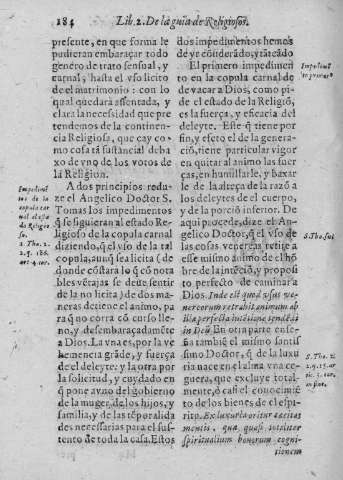 184
Lib. 2. De la guia de Religiosos.
presente, en que forma le
pudieran embaraçar todo
genero de trato sensual, y
carnal, hasta el vso licito
de el matrimonio: con lo
qual quedara assentada, y
clara la necessidad que pre
tendemos de la continen-
cia Religiosa, que cay co-
mo cosa tā sustancial deba
xo de vno de los votos de
la Religion.
A dos principios redu-
ze el Angelico Doctor S.
Tomas los impedimentos
q̃ se siguieran al estado Re-
ligioso de la copula carnal
diziendo, q̃ el vso de la tal
copula, aunq̃ sea licita (de
donde cōstara lo q̃ con nota
bles vētajas se deue sentir
de la no licita) de dos ma-
neras detiene el animo, pa
ra q̃ no corra cō curso lle-
no, y desembaraçadamēte
a Dios. La vna es, por la ve
hemencia grāde, y fuerça
de el deleyte: y la otra por
la solicitud, y cuydado en
q̃ pone a vno del gobierno
de la muger, de los hijos, y
familia, y de las tēporalida
des necessarias para el sus-
tento de toda la casa. Estos
Impedimē
tos de la
copula car
nal al esta
do Religio
so.
S. Tho. 2.
2. q. 186.
art. 4. cor.
dos impedimentos hemos
de yr cōsiderādo, y tratādo
El primero impedimen
to en la copula carnal, de
de vacar a Dios, como pi-
de el estado de la Religiō,
es la fuerça, y eficacia del
deleyte. Este q̃ tiene por
fin, y efeto el de la genera-
ciō, tiene particular vigor
en quitar al animo las fuer
ças, en humillarle, y baxar
le de la alteça de la razō a
los deleytes de el cuerpo,
y de la porciō inferior. De
aqui procede, dize el An-
gelico Doctor, q̃ el vso de
las cosas venereas retije a
esse mismo animo de el hō
bre de la intēciō, y proposi
to perfecto de caminar a
Dios. Inde est quod vsus ve-
nereorum retrahit animum ab
illa perfecta intētione tendēdi
in Deū. En otra parte ense-
ña tambiē el mismo santis
simo Doctor, q̃ de la luxu
ria nace en el alma vna ce-
guera, que excluye total-
mente, ò casi el conocimiē
to de los bienes de el espi-
ritu. Ex luxuria oritur cæcitas
mentis, quæ quasi totaliter
spiritualium bonorum cogni-
tionem
Impedimē
to primero
S. Tho. sup.
S. Tho. 2.
2. q. 15. ar
tic. 3. cor.